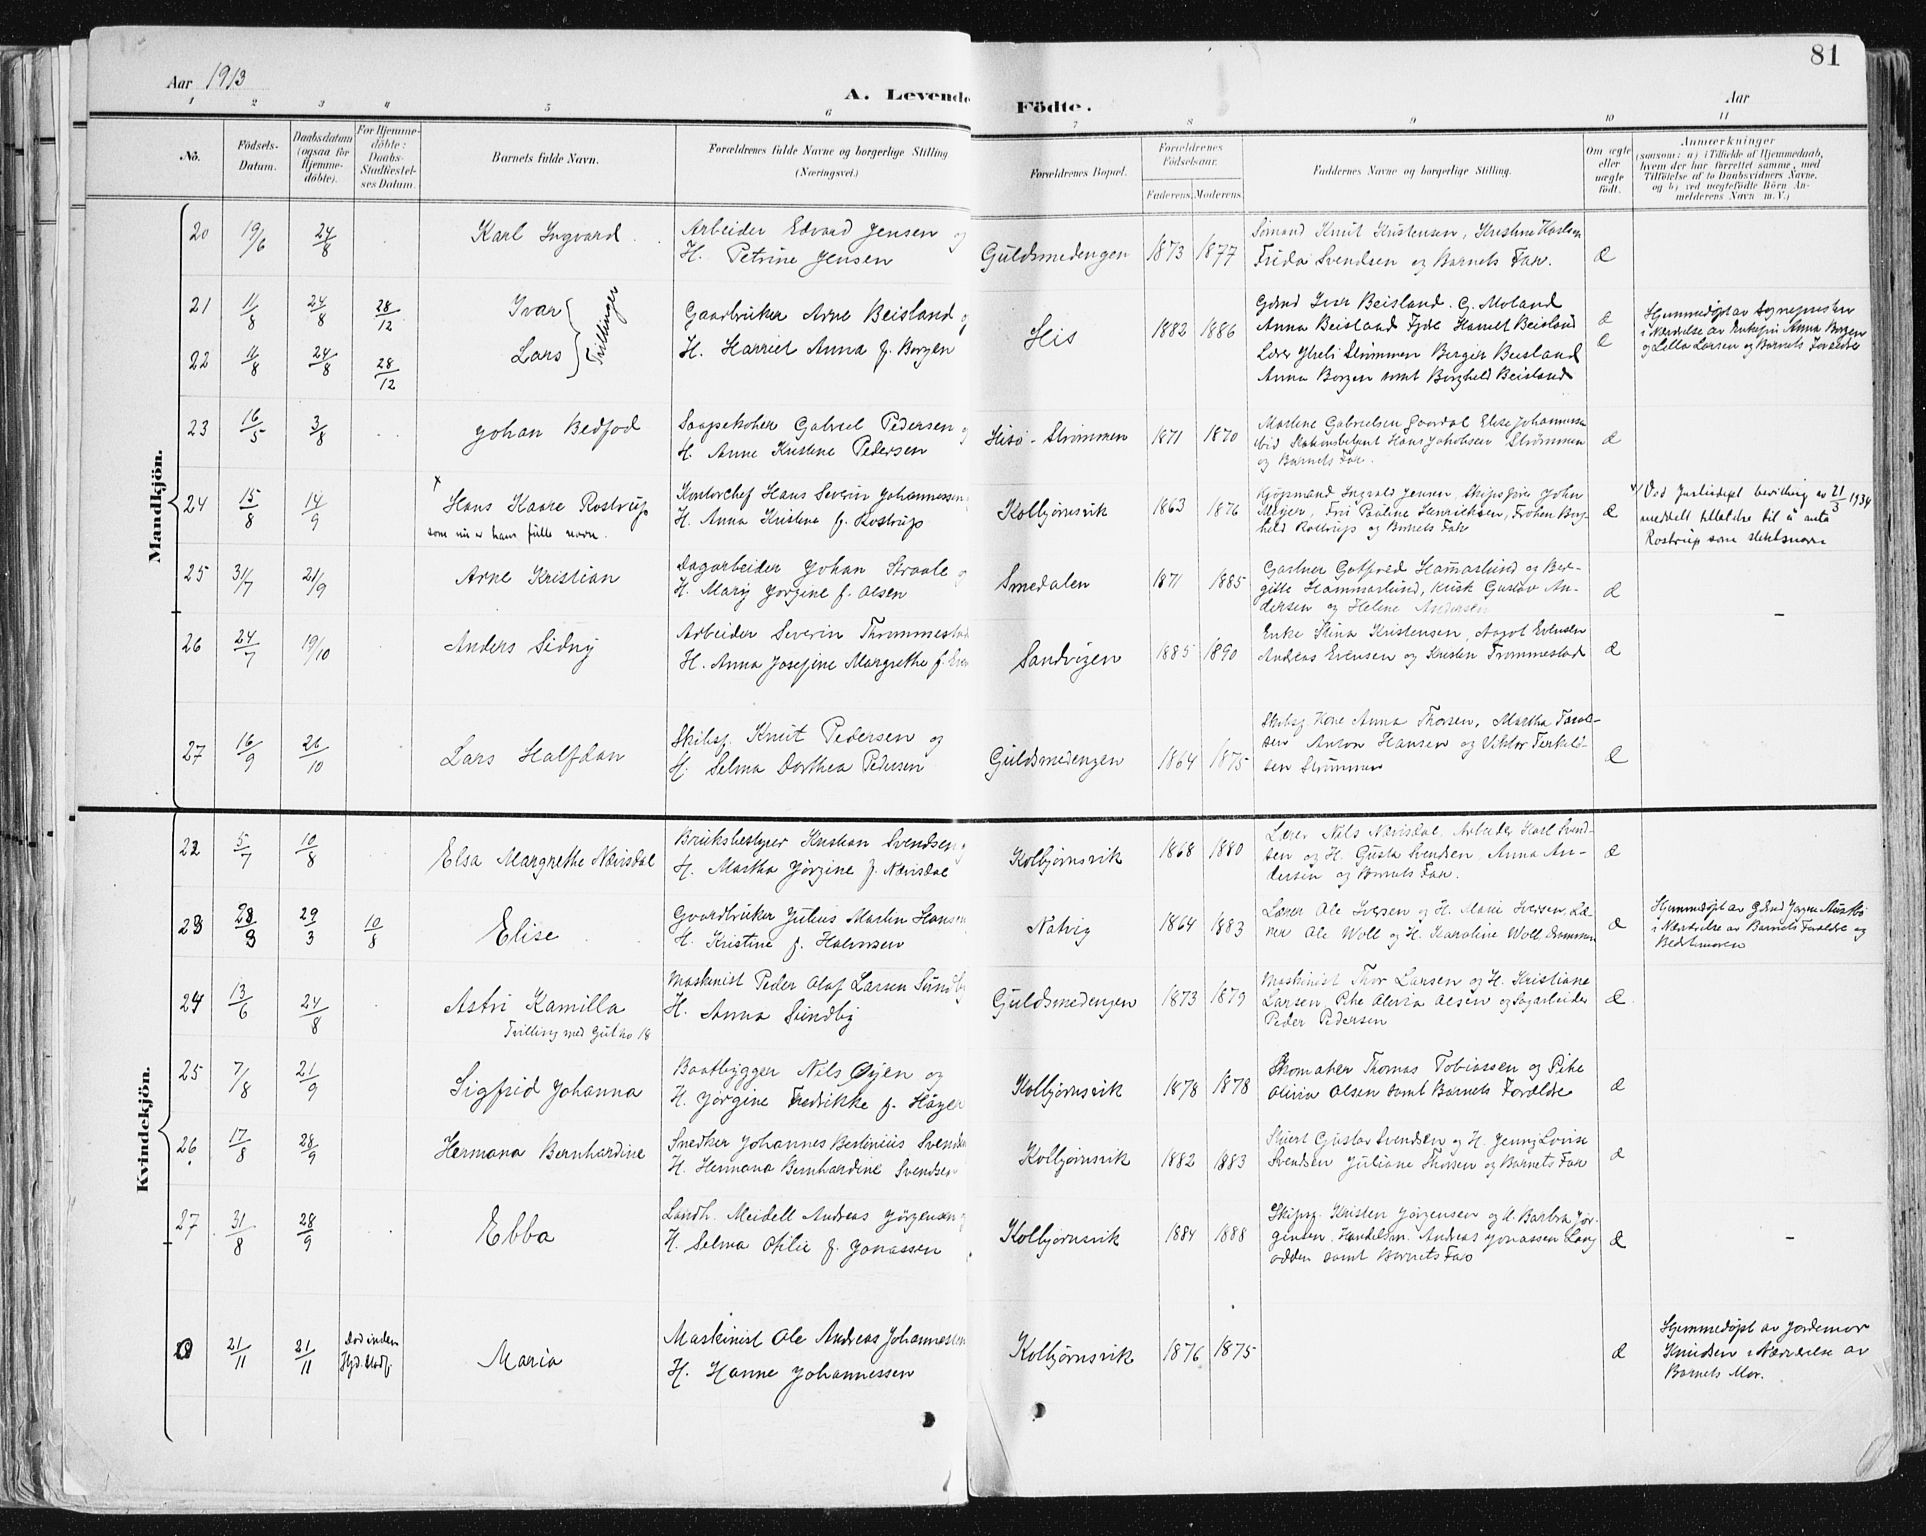 81
Aar 1913
A. Levende Födte.
Aar
1 2 3 4 5 6 7 8 9 10 11
No.
Födsels-
Datum.
Daabsdatum
(ogsaa for
Hjemme-
döbte).
For Hjemme-
döbte:
Daabs-
Stadfæstel-
ses Datum.
Barnets fulde Navn.
Forældrenes fulde Navne og borgerlige Stilling
(Næringsvei.)
Forældrenes Bopæl.
Forældrenes
Fødselsaar.
Faderens. Moderens.
Faddernes Navne og borgerlige Stilling.
Om ægte
eller
uægte
født.
Anmærkninger
(saasom: a) i Tilfælde af Hjemmedaab,
hvem der har forrettet samme, med
Tilföielse af to Daabsvidners Navne,
og b) ved uægtefödte Börn An-
melderens Navn m. V.)
Mandkjön.
20 19/6 24/8 Karl Ingvard
Arbeider Edvard Jensen og
H. Petrine Jensen
Guldsmedengen 1873 1877
Sømand Knut Kristensen, Kristine Karlsen
Frida Svendsen og Barnets Far.
Æ
21 11/8 24/8 28/12 Ivar
22 11/8 24/8 28/12 Lars
Tvillinger
Gaardbruker Arne Beisland og
H. Harriet Anna f. Borgen
His 1882 1886
Gdmd Iver Beisland. G. Moland
Anna Beisland Harriet Beisland
Lærer Strømmen Birger Beisland
Anna Borgen samt Borghild Beisland
Æ
Æ
Hjemmedøpt av Sognepresten
i Nærværelse av Enkefru Anna Borgen
og Lella Larsen og Barnets Forældre
23 16/5 3/8 Johan Bedford
Saapekoker Gabriel Pedersen og
H. Anne Kristine Pedersen
Hisø - Strømmen 1871 1870
Martine Gabrielsen Elise Johannesen
Hans Jakobsen Strømmen
og Barnets Far.
Æ
24 15/8 14/9 x Hans Kaare Rostrup
som nu er hans fulle navn.
Kontorchef Hans Severin Johannessen
H. Anna Kristine f. Rostrup
Kolbjørnsvik 1863 1876
Kjøpmand Ingvald Jensen, Skipsfører John
Meyer, Frk Pauline Henriksen, Frøken Borg-
hild Rostrup og Barnets Far
Æ
x/ Ved Justisdept bevilling av 21/3 1934
meddelt tillatelse til å anta
Rostrup som slektsnavn
25 31/7 21/9 Arne Kristian
Dagarbeider Johan Straale og
H. Mary Jørgine f. Olsen
Smedalen 1871 1885
Gartner Gotfred Hammarlund og Ber-
gitte Hammarlund, Gustav An-
dersen og Helene Andersen
Æ
-
26 24/7 19/10 Anders Sidny
Arbeider Severin Thrommestad
H. Anna Josefine Margrethe f.
Sandvigen 1885 1890
Enke Stina Kristensen, Evensen
Andreas Evensen og Kristen Trommestad
Æ
27 16/9 26/10 Lars Halfdan
Skibsf. Knut Pedersen og
H. Selma Dorthea Pedersen
Guldsmedengen 1864 1875
Skibsf. Kone Anna Thorsen, Martha
sen Anton Hansen og Viktor Terkel-
sen Strømmen
Æ
Kvindekjön.
22 5/7 10/8 Elsa Margrethe Nævisdal
Bruksbestyrer Kristian Svendsen og
H. Martha Jørgine f. Nævisdal
Kolbjørnsvik 1868 1880
Lærer Nils Nævisdal, Arbeider Karl Svend-
sen og H. Gusta Svendsen, Anna An-
dersen og Barnets Far.
Æ
23 28/3 29/3 10/8 Elise
Gaardbruker Julius Martin Hansen
H. Kristine f. Halvorsen
Natvig 1864 1883
Lærer Ole Iversen og H. Marie Iversen, Læ-
rer Ole Woll og H. Karoline Woll Strømmen
Æ
Hjemmedøpt av Gdmd Jørgen
i Nærværelse av Barnets Forældre og
Bedstemoren
24 13/6 24/8 Astri Kamilla
Tvilling med Gut no 18
Maskinist Peder Olaf Larsen Sundby
H. Anna Sundby
Guldsmedengen 1873 1879
Maskinist Thor Larsen og H. Kristiane
Larsen, Pike Olivia Olsen og Sagarbeider
Peder Pedersen
Æ
25 7/8 21/9 Sigfrid Johanna
Baatbygger Nils Øyen og
H. Jørgine Fredrikke f. Høyer
Kolbjørnsvik 1878 1878
Skomaker Thomas Tobiassen og Pike
Olivia Olsen samt Barnets Forældre
Æ
26 17/8 28/9 Hermana Bernhardine
Snedker Johannes Bertinius Svendsen
H. Hermana Bernhardine Svendsen
Kolbjørnsvik 1882 1883
Stuert Gustav Svendsen og H. Jenny Lovise
Svendsen Juliane Thorsen og Barnets Far
Æ
27 31/8 28/9 Ebba
Landh. Meidell Andreas Jørgensen og
H. Selma Otilie f. Jonassen
Kolbjørnsvik 1884 1888
Skipsf. Kristen Jørgensen og H. Barbra Jør-
gensen, Handelsm. Andreas Jonassen Lang
odden samt Barnets Far
Æ
-
0 21/11 21/11 Død inden
Maria
Maskinist Ole Andreas Johannessen
H. Hanne Johannessen
Kolbjørnsvik 1876 1875
Æ
Hjemmedøpt av Jordemor
Knudsen i Nærværelse av
Barnets Mor.